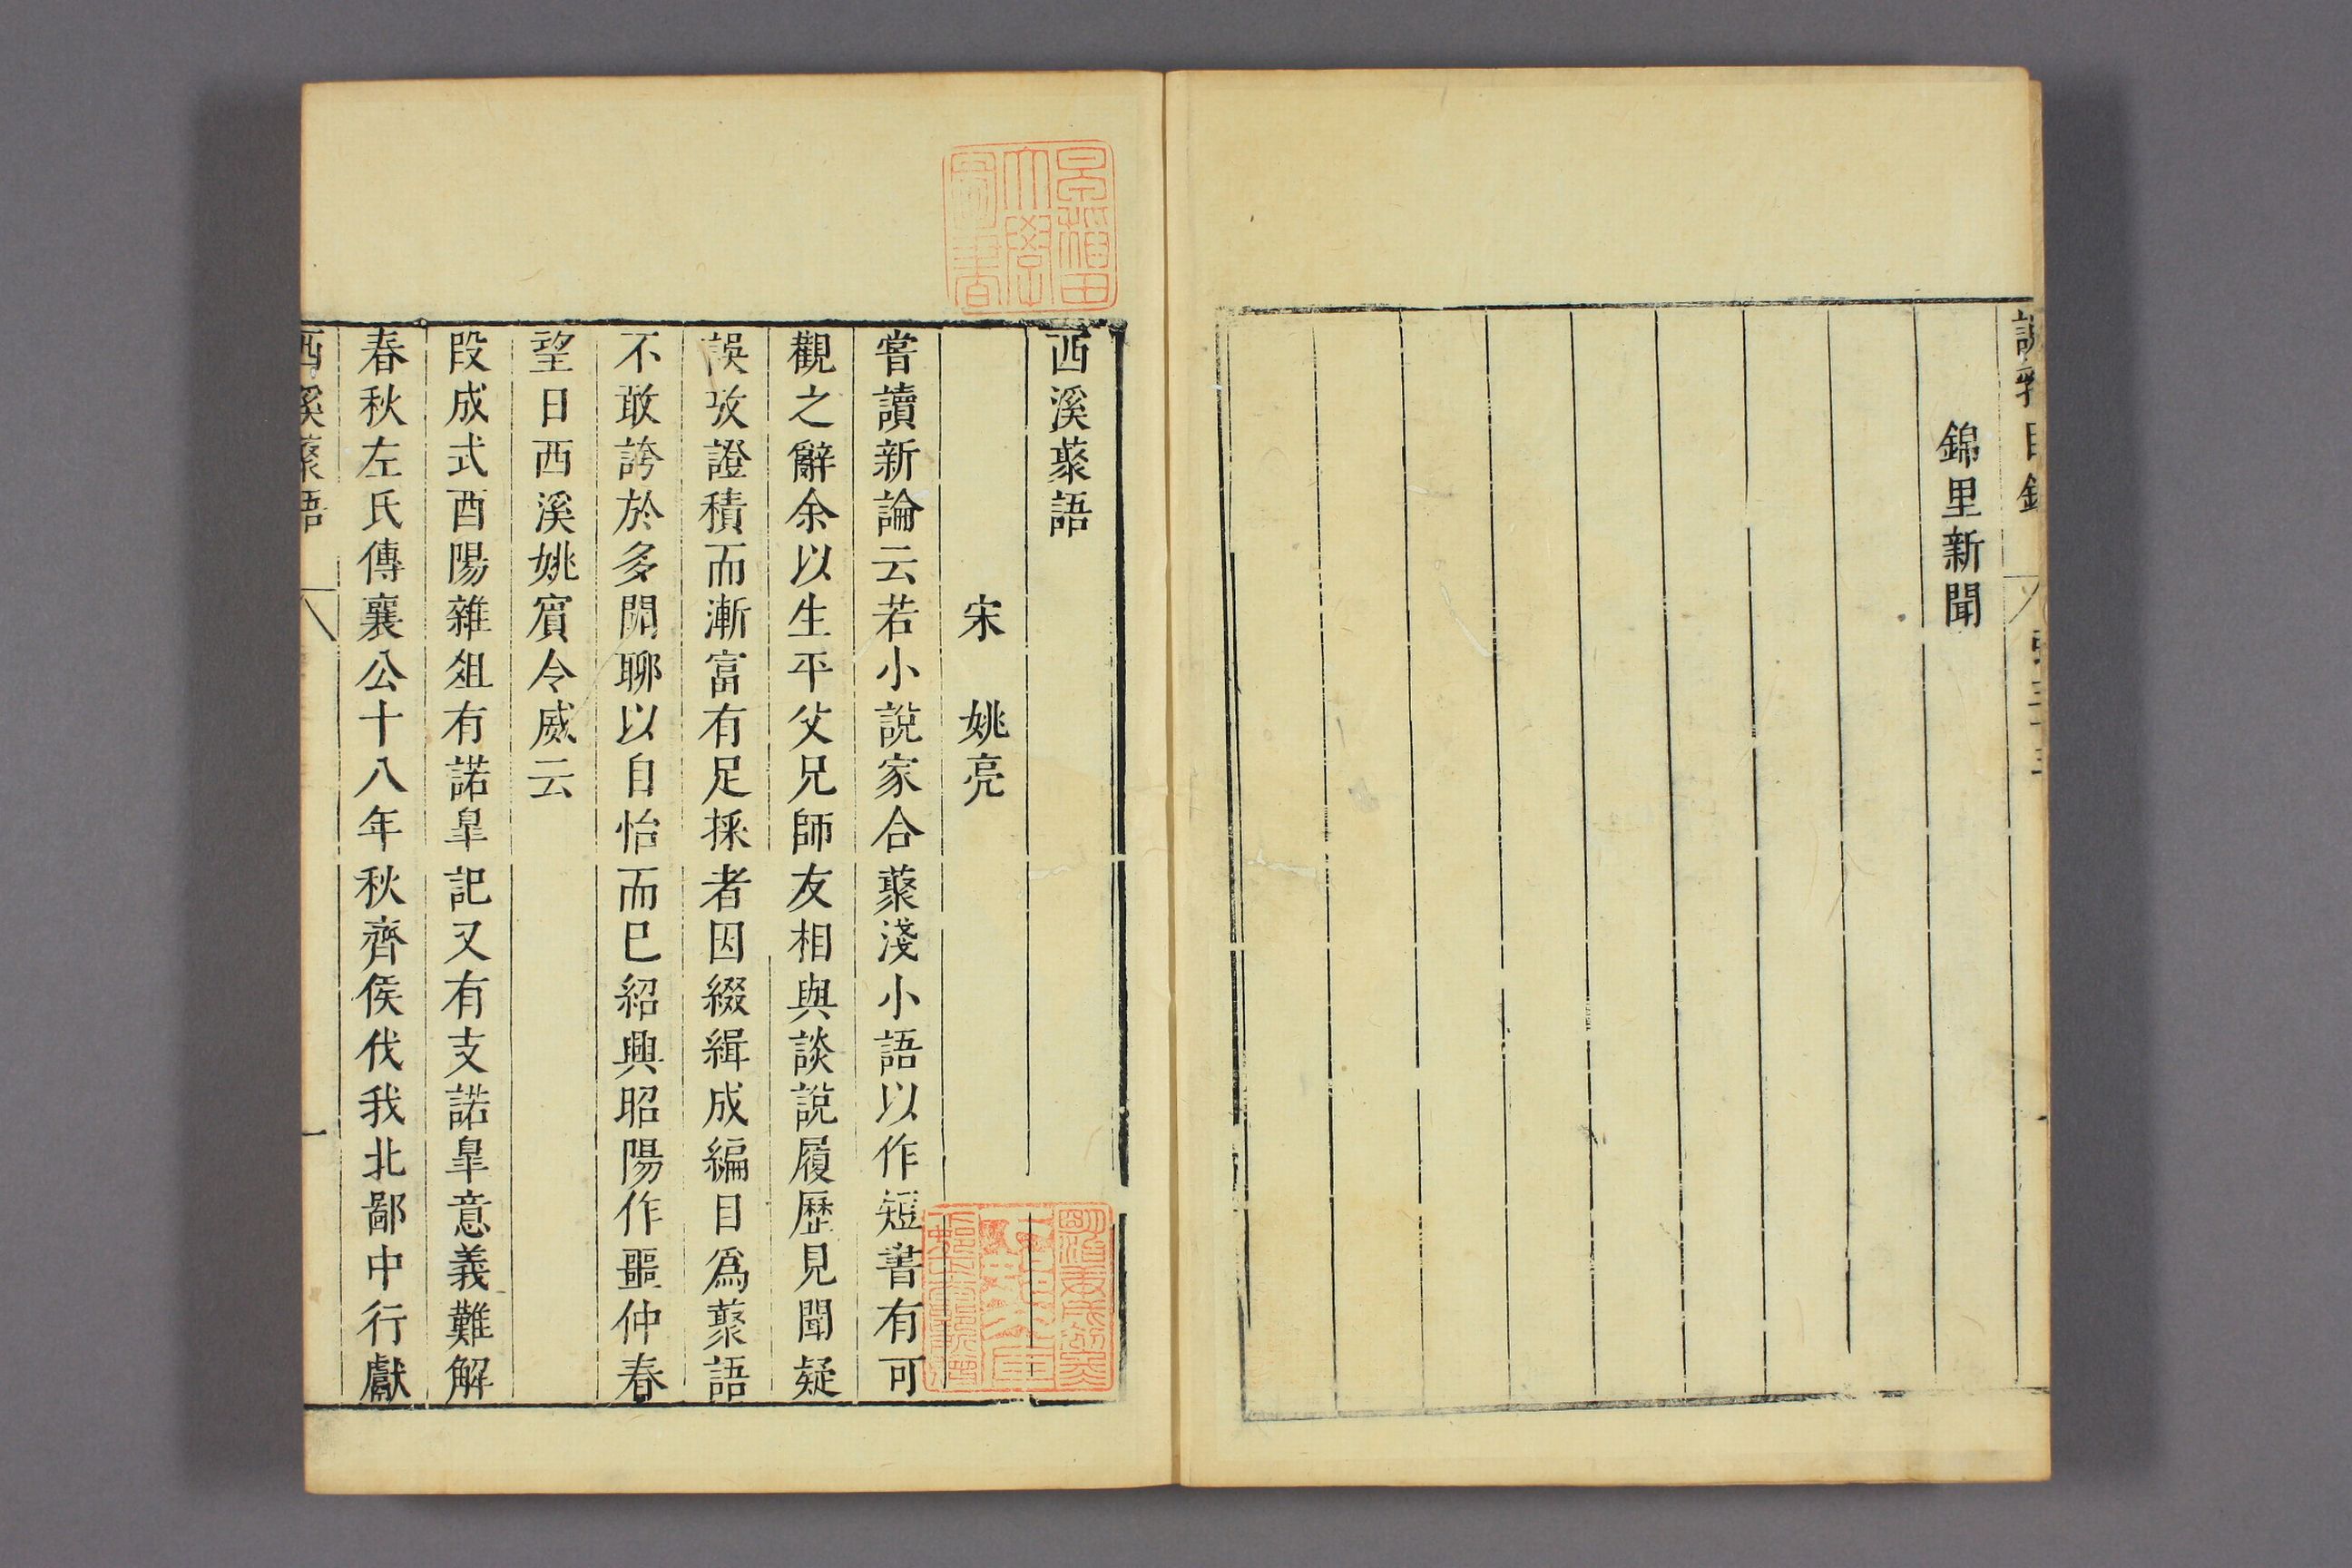 錦里新聞
西溪藂語
宋 姚亮
嘗讀新論云若小說家合藂淺小語以作短書有可
觀之辭余以生平父兄師友相與談說履歷見聞疑
誤攷證積而漸富有足採者因綴緝成編目爲藂語
不敢誇於多聞聊以自怡而巳紹興昭陽作噩仲春
望日西溪姚寬令威云
段成式酉陽雜俎有諾臯記又有支諾臯意義難解
春秋左氏傳襄公十八年秋齊侯伐我北鄙中行獻
西溪藂語 一